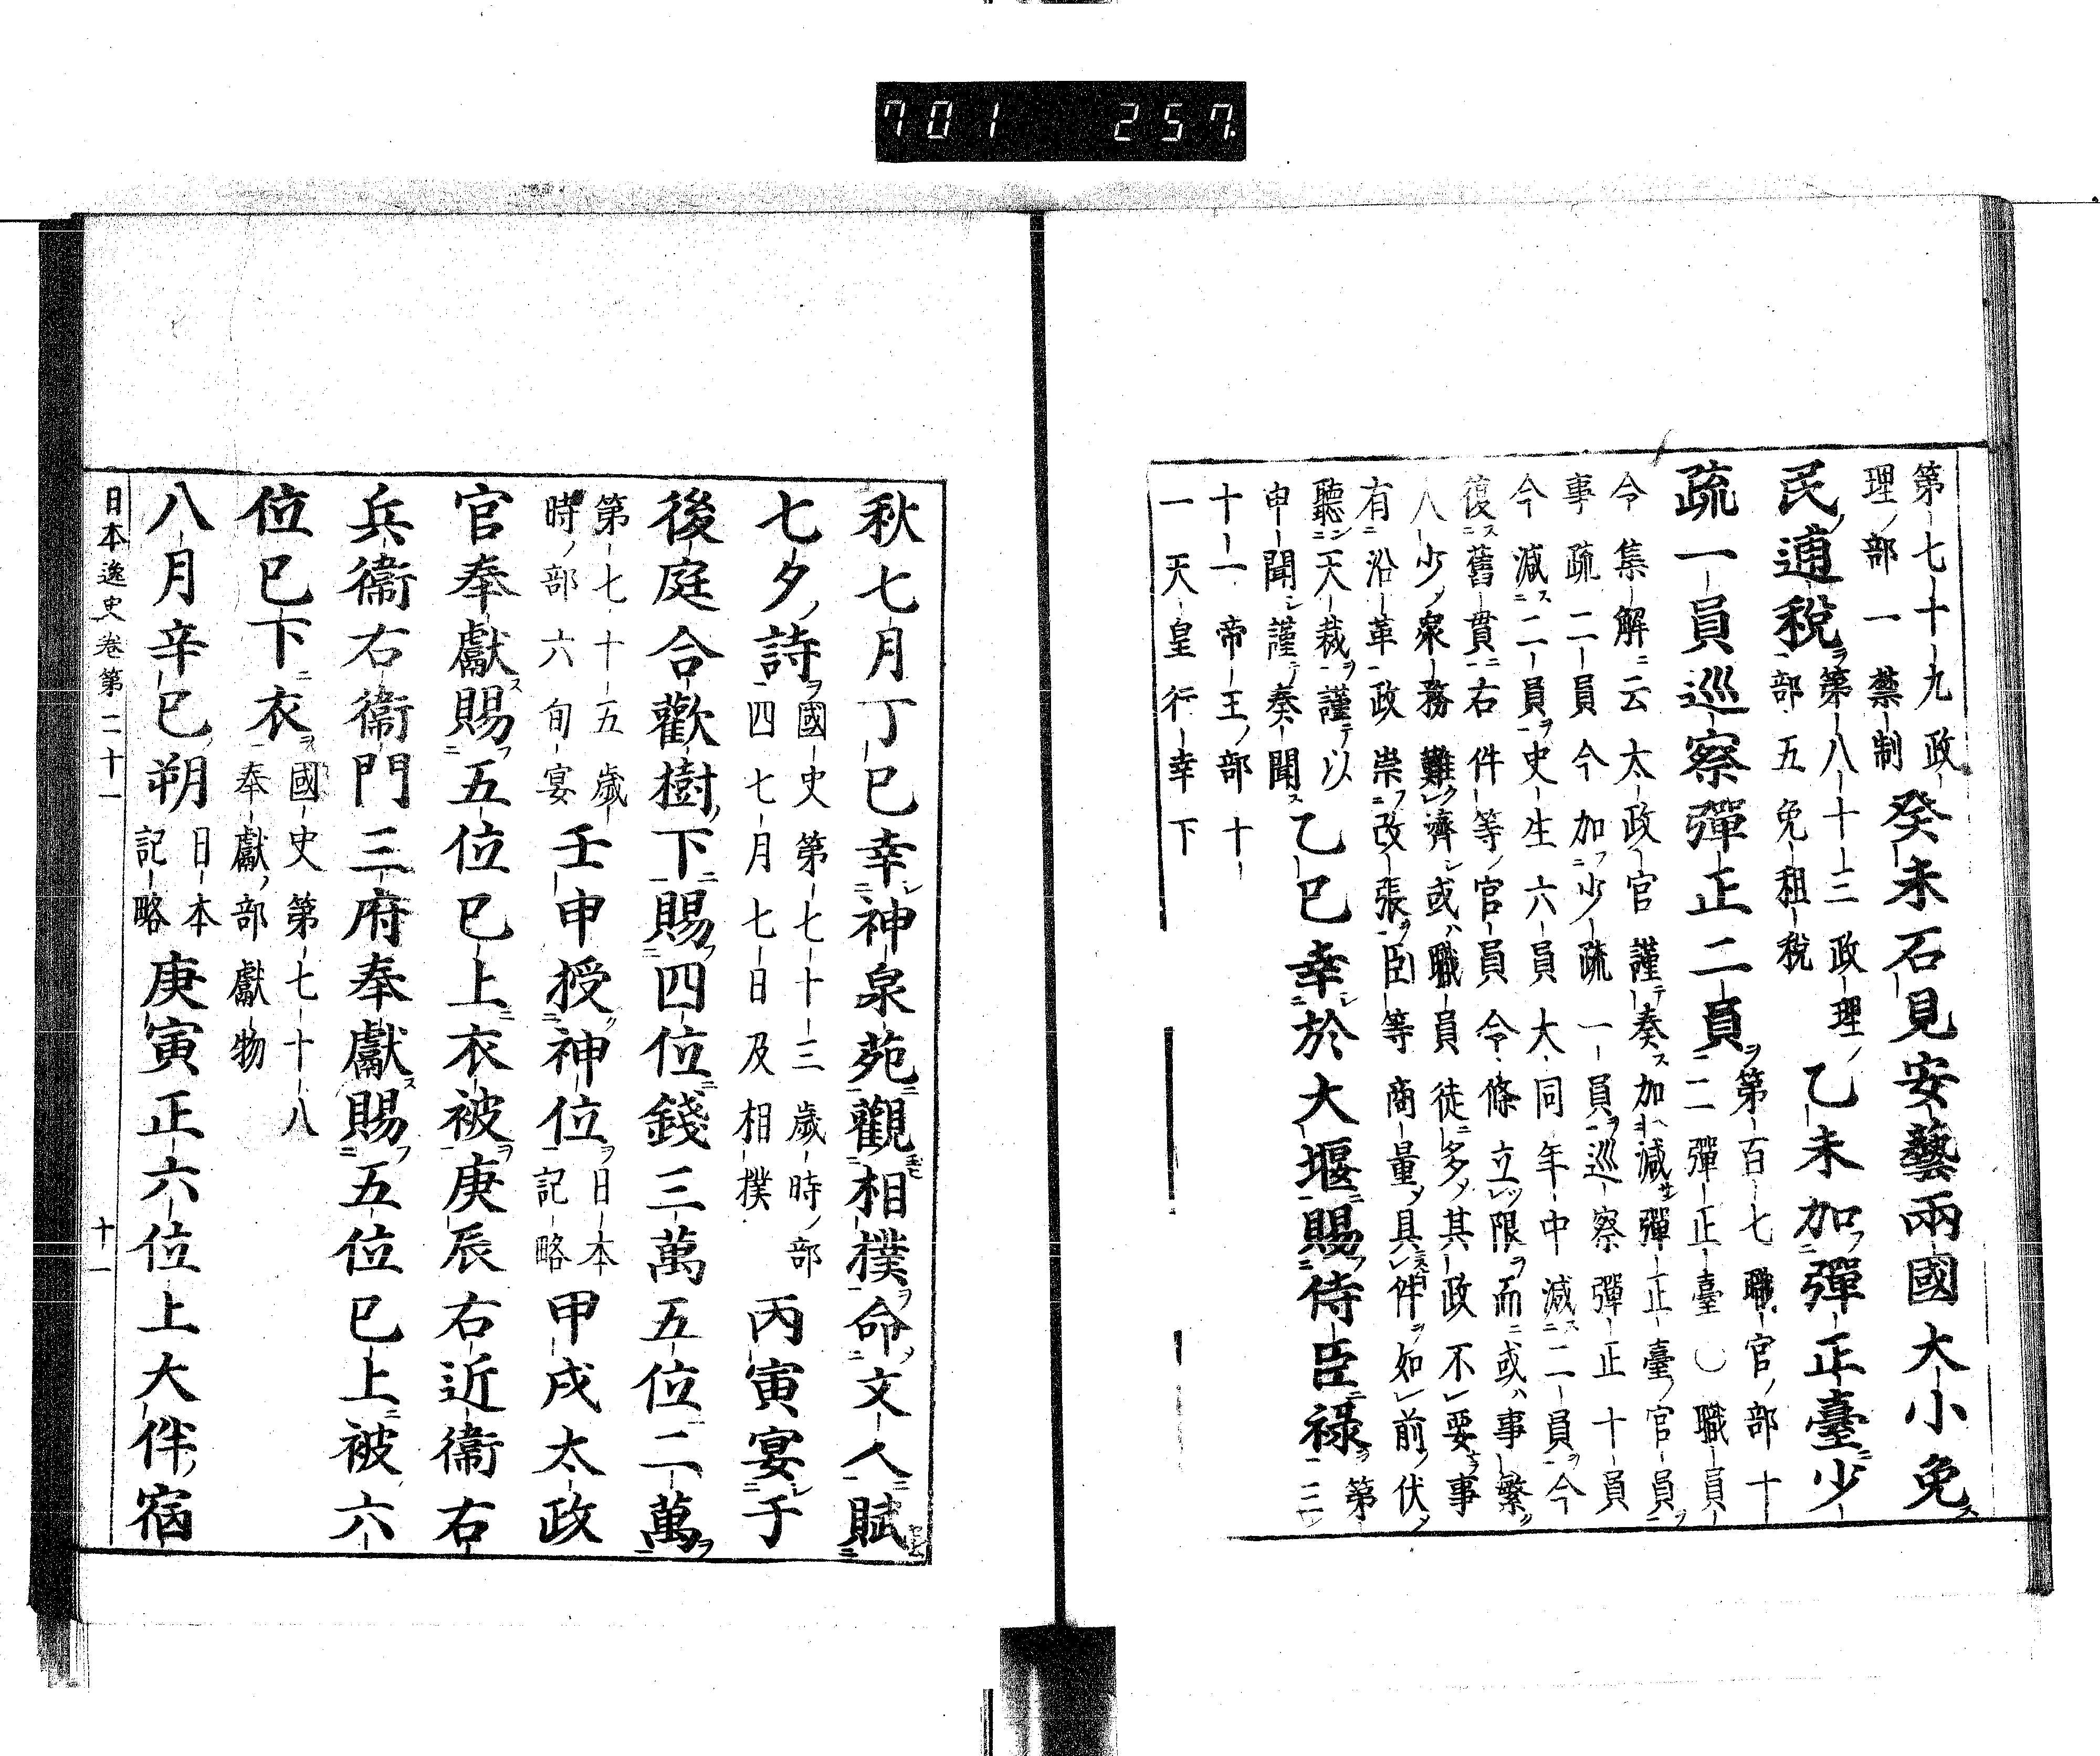 701 257
第七十九政
理部一禁制
癸未石見安藝兩國大小免
民逋税
第八十三政理
部五免租税
乙未加彈正臺少
疏一員巡察彈正二員
第百七職官部十
二彈正臺○職員
令集解云太政官謹奏加減彈正臺官員
事疏二員今加少疏一員巡察彈正十員
今減二員史生六員大同年中減二員今
復舊貫右件等官員令條立限而或事繁
八少衆務難濟或職員徒多其政不要事
有沿革政崇改張臣等商量具件如前伏
聽天裁謹以
申聞謹奏聞
乙巳幸於大堰賜侍臣祿
第
三
十一帝王部十
一天皇行幸下
秋七月丁巳幸神泉苑觀相撲命文人賦
七夕詩
國史第七十三歲時部
四七月七日及相撲
丙寅宴于
後庭合歡樹下賜四位錢三萬五位二萬
第七十五歲
時部六旬宴
壬申授神位
日本
記略
甲戌太政
官奉獻賜五位已上衣被庚辰右近衞右
兵衞右衞門三府奉獻賜五位已上被六
位已下衣
國史第七十八
奉獻部獻物
八月辛巳朔
日本
記略
庚寅正六位上大伴宿
日本逸史卷第二十一 十一